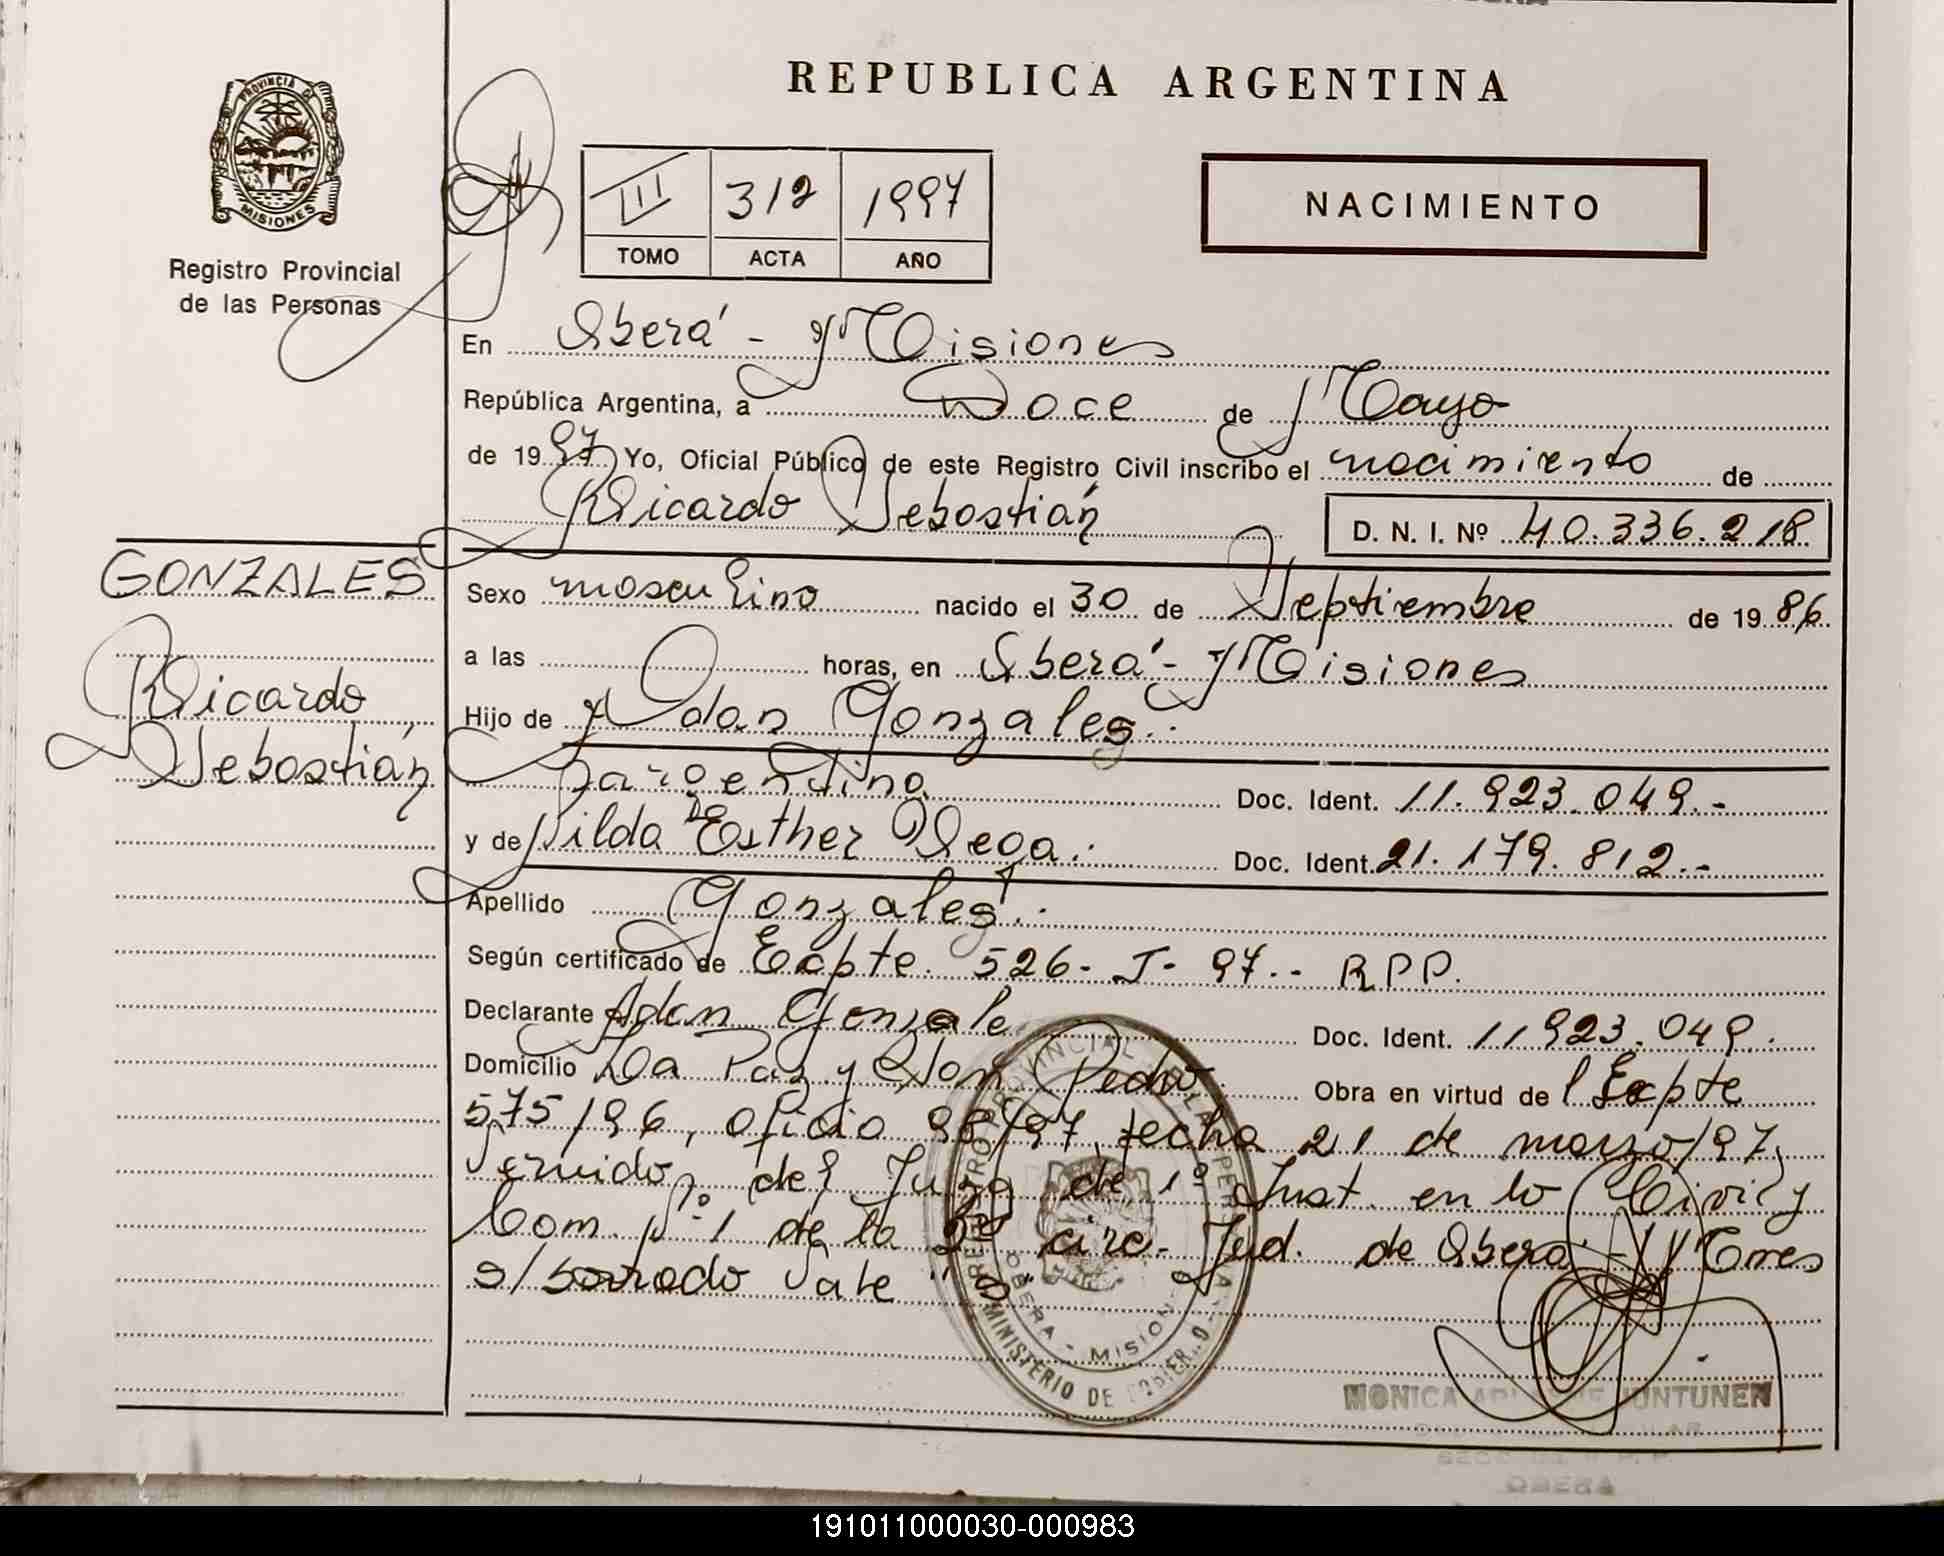 REPUBLICA ARGENTINA
PROVINCIA DE
MISIONES
Registro Provincial
de las Personas
III 312 1997
TOMO ACTA AÑO
NACIMIENTO
En Oberá - Misiones
República Argentina, a Doce de Mayo
de 1997 Yo, Oficial Público de este Registro Civil inscribo el nacimiento de
Ricardo Sebastián D. N. I. Nº 40.336.218
GONZALES
Ricardo
Sebastián
Sexo masculino nacido el 30 de Septiembre de 1986.
a las horas, en Oberá - Misiones
Hijo de Adan Gonzales.
argentino Doc. Ident. 11.923.049.-
y de Nilda Esther Vega. Doc. Ident. 21.179.812.-
Apellido Gonzales.
Según certificado de Expte. 526- J- 97.- RPP.
Declarante Adan Gonzale Doc. Ident. 11923.049.
Domicilio La Paz y San Pedro Obra en virtud de l Expte
575/96, oficio 98/97, fecha 21 de marzo/97,
venido del Juzg de 1º Inst. en lo Civil y
Com. Nº 1 de la 2º circ. Jud. de Oberá - Mnes
s/borrado Vale "s"
OBERA - MISIONES
MINISTERIO DE GOBIERNO
MONICA JUNTUNEN
OBERA
191011000030-000983